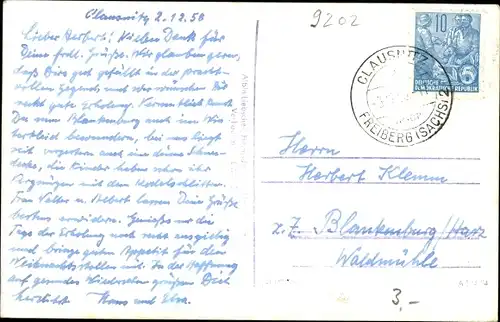 Clausnitz 2.12.58
Lieber Herbert! Vielen Dank für
Deine frdl. Grüße. Wir glauben gern,
daß Dirs gut gefällt in der pracht-
vollen Gegend, und wir wünschen Dir
recht gute Erholung. Kannst auch Du
nun Blankenburg auch im Win-
terkleid bewundern, bei uns liegt
seit vorgestern auch eine dünne Schnee-
decke, die Kinder haben schon ihr
Vergnügen mit dem Rodelschlitten.
Frau Walter u. Albert lassen Deine Grüße
bestens erwidern. Genieße nur die
Tage der Erholung noch recht ausgiebig
und bringe guten Appetit für den
Weihnachtsstollen mit. In der Hoffnung
auf gesundes Wiedersehen grüßen Dich
herzlichst Hans und Elsa.
9202
10
DEUTSCHE
DEMOKRATISCHE REPUBLIK
CLAUSNITZ
FREIBERG (SACHS) 2
Herrn
Herbert Klemm
z. Z. Blankenburg/Harz
Waldmühle
3,-